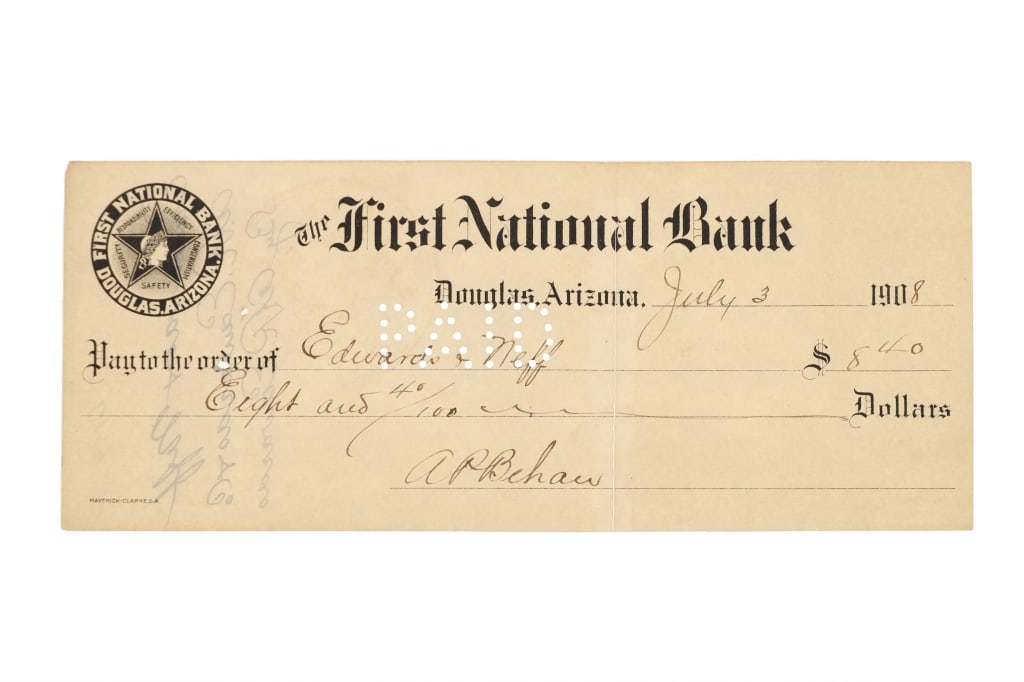 FIRST NATIONAL BANK
DOUGLAS, ARIZONA.
RESPONSIBILITY
EFFICIENCY
SECURITY
SAFETY
The First National Bank
Douglas, Arizona. July 3 1908
PAID
Pay to the order of Edwards & Neff $ 8 40
Eight and 40/100 Dollars
A P Behan
MAVERICK-CLARKE, S.A.